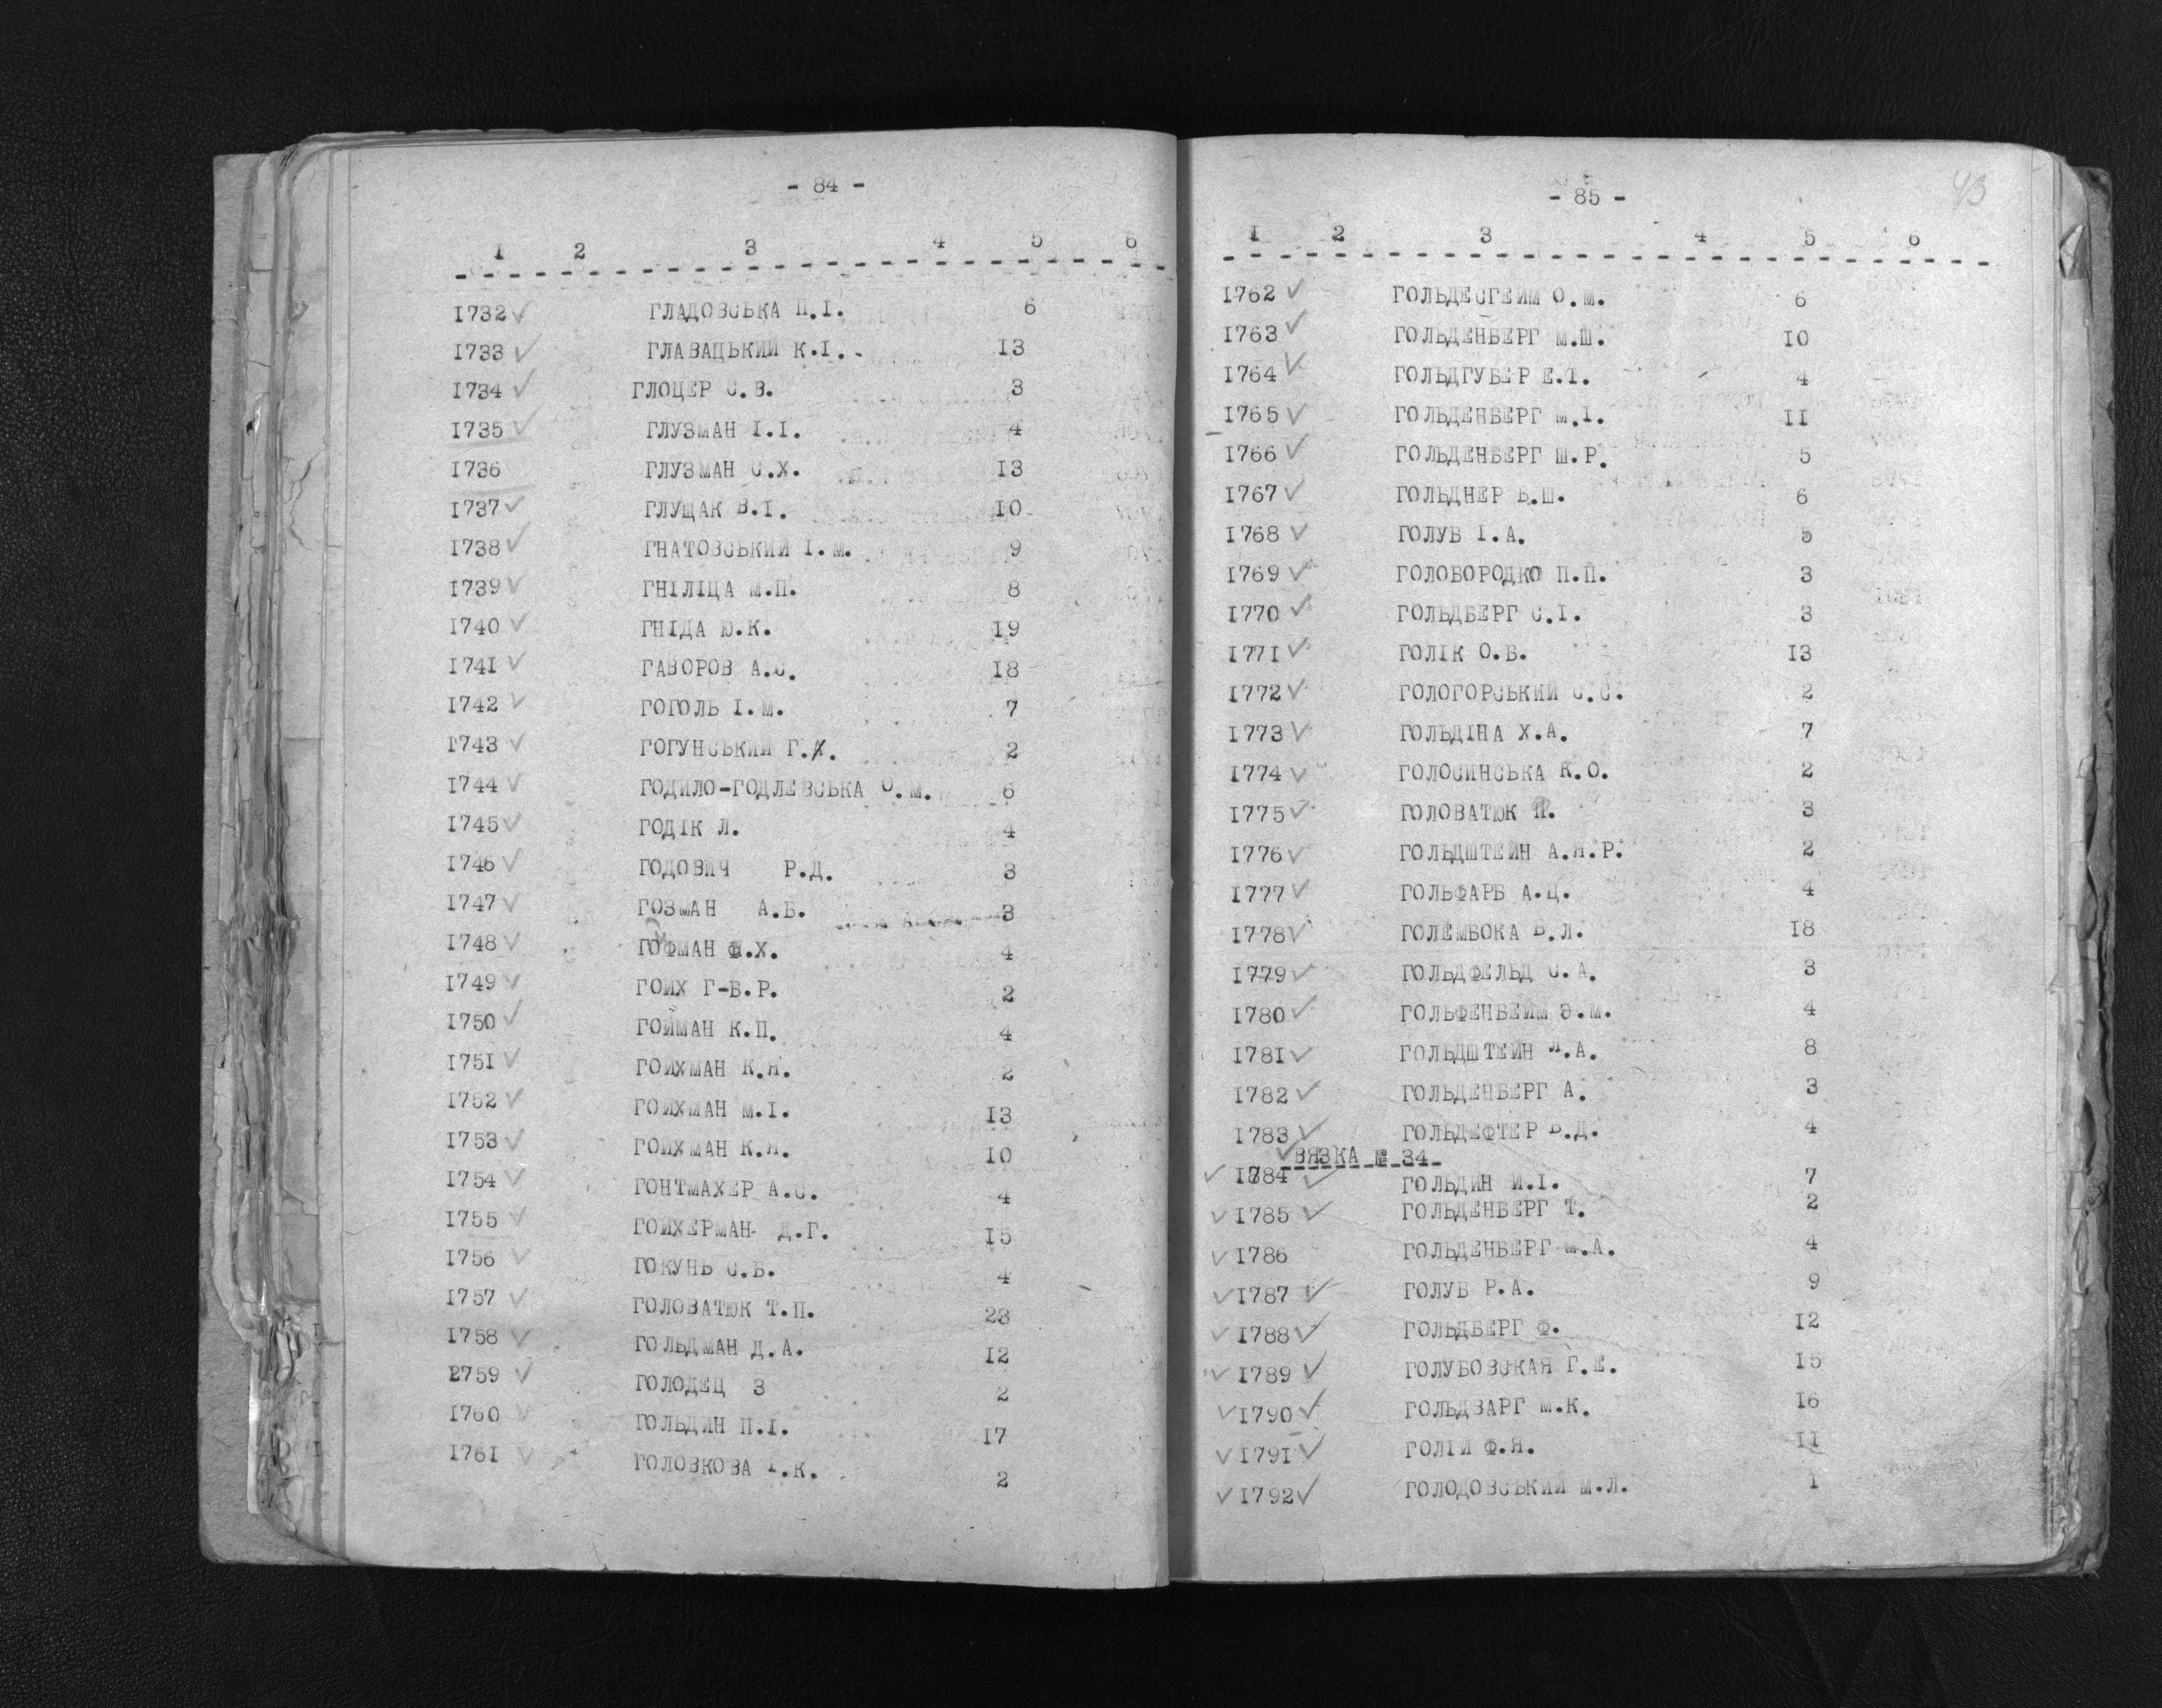 - 84 -
1 2 3 4 5 6
1732 ✓ ГЛАДОВСЬКА П.І. 6
1733 ✓ ГЛАВАЦЬКИЙ К.І. 13
1734 ✓ ГЛОЦЕР С.В. 3
1735 ✓ ГЛУЗМАН І.І. 4
1736 ГЛУЗМАН С.Х. 13
1737 ✓ ГЛУЩАК В.І. 10
1738 ✓ ГНАТОВСЬКИЙ І.М. 9
1739 ✓ ГНІЛІЦА М.П. 8
1740 ✓ ГНІДА Ю.К. 19
1741 ✓ ГАВОРОВ А.С. 18
1742 ✓ ГОГОЛЬ І.М. 7
1743 ✓ ГОГУНСЬКИЙ Г.Х. 2
1744 ✓ ГОДИЛО-ГОДЛЕВСЬКА О.М. 6
1745 ✓ ГОДІК Л. 4
1746 ✓ ГОДОВИЧ Р.Д. 3
1747 ✓ ГОЗМАН А.Б. 3
1748 ✓ ГОФМАН Ф.Х. 4
1749 ✓ ГОИХ Г-Б.Р. 2
1750 ✓ ГОЙМАН К.П. 4
1751 ✓ ГОИХМАН К.Я. 2
1752 ✓ ГОИХМАН М.І. 13
1753 ✓ ГОИХМАН К.Я. 10
1754 ✓ ГОНТМАХЕР А.С. 4
1755 ✓ ГОИХЕРМАН Д.Г. 15
1756 ✓ ГОКУНЬ С.Б. 4
1757 ✓ ГОЛОВАТЮК Т.П. 23
1758 ✓ ГОЛЬДМАН Д.А. 12
1759 ✓ ГОЛОДЕЦ З 2
1760 ✓ ГОЛЬДИН П.І. 17
1761 ✓ ГОЛОВКОВА І.К. 2
43
- 85 -
1 2 3 4 5 6
1762 ✓ ГОЛЬДЕСГЕЙМ О.М. 6
1763 ✓ ГОЛЬДЕНБЕРГ М.Ш. 10
1764 ✓ ГОЛЬДГУБЕР Е.Т. 4
1765 ✓ ГОЛЬДЕНБЕРГ М.І. 11
1766 ✓ ГОЛЬДЕНБЕРГ Ш.Р. 5
1767 ✓ ГОЛЬДНЕР Б.Ш. 6
1768 ✓ ГОЛУБ І.А. 5
1769 ✓ ГОЛОБОРОДКО П.П. 3
1770 ✓ ГОЛЬДБЕРГ С.І. 3
1771 ✓ ГОЛІК О.Б. 13
1772 ✓ ГОЛОГОРСЬКИЙ С.С. 2
1773 ✓ ГОЛЬДІНА Х.А. 7
1774 ✓ ГОЛОСИНСЬКА К.О. 2
1775 ✓ ГОЛОВАТЮК П. 3
1776 ✓ ГОЛЬДШТЕЙН А.Я.Р. 2
1777 ✓ ГОЛЬФАРБ А.Ц. 4
1778 ✓ ГОЛЕМБОКА В.Л. 18
1779 ✓ ГОЛЬДФЕЛЬД С.А. 3
1780 ✓ ГОЛЬФЕНБЕЙМ Э.М. 4
1781 ✓ ГОЛЬДШТЕЙН Л.А. 8
1782 ✓ ГОЛЬДЕНБЕРГ А. 3
1783 ✓ ГОЛЬДЕФТЕР В.Д. 4
✓ ВЯЗКА № 34
✓ 1784 ✓ ГОЛЬДИН И.І. 7
✓ 1785 ✓ ГОЛЬДЕНБЕРГ Т. 2
✓ 1786 ГОЛЬДЕНБЕРГ М.А. 4
✓ 1787 ✓ ГОЛУБ Р.А. 9
✓ 1788 ✓ ГОЛЬДБЕРГ Ф. 12
✓ 1789 ✓ ГОЛУБОВСКАЯ Г.Е. 15
✓ 1790 ✓ ГОЛЬДВАРГ М.К. 16
✓ 1791 ✓ ГОЛІЙ Ф.Я. 11
✓ 1792 ✓ ГОЛОДОВСЬКИЙ М.Л. 1